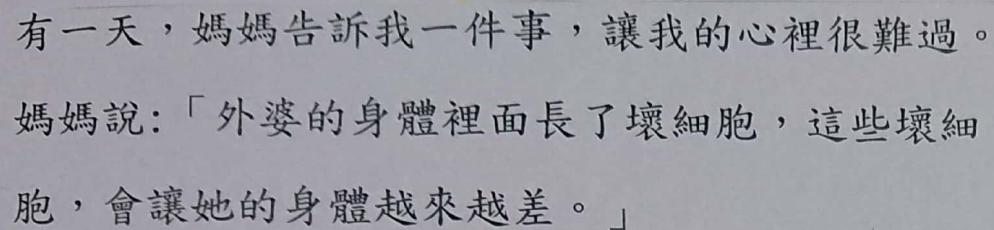 有一天，媽媽告訴我一件事，讓我的心裡很難過。
媽媽說:「外婆的身體裡面長了壞細胞，這些壞細
胞，會讓她的身體越來越差。」